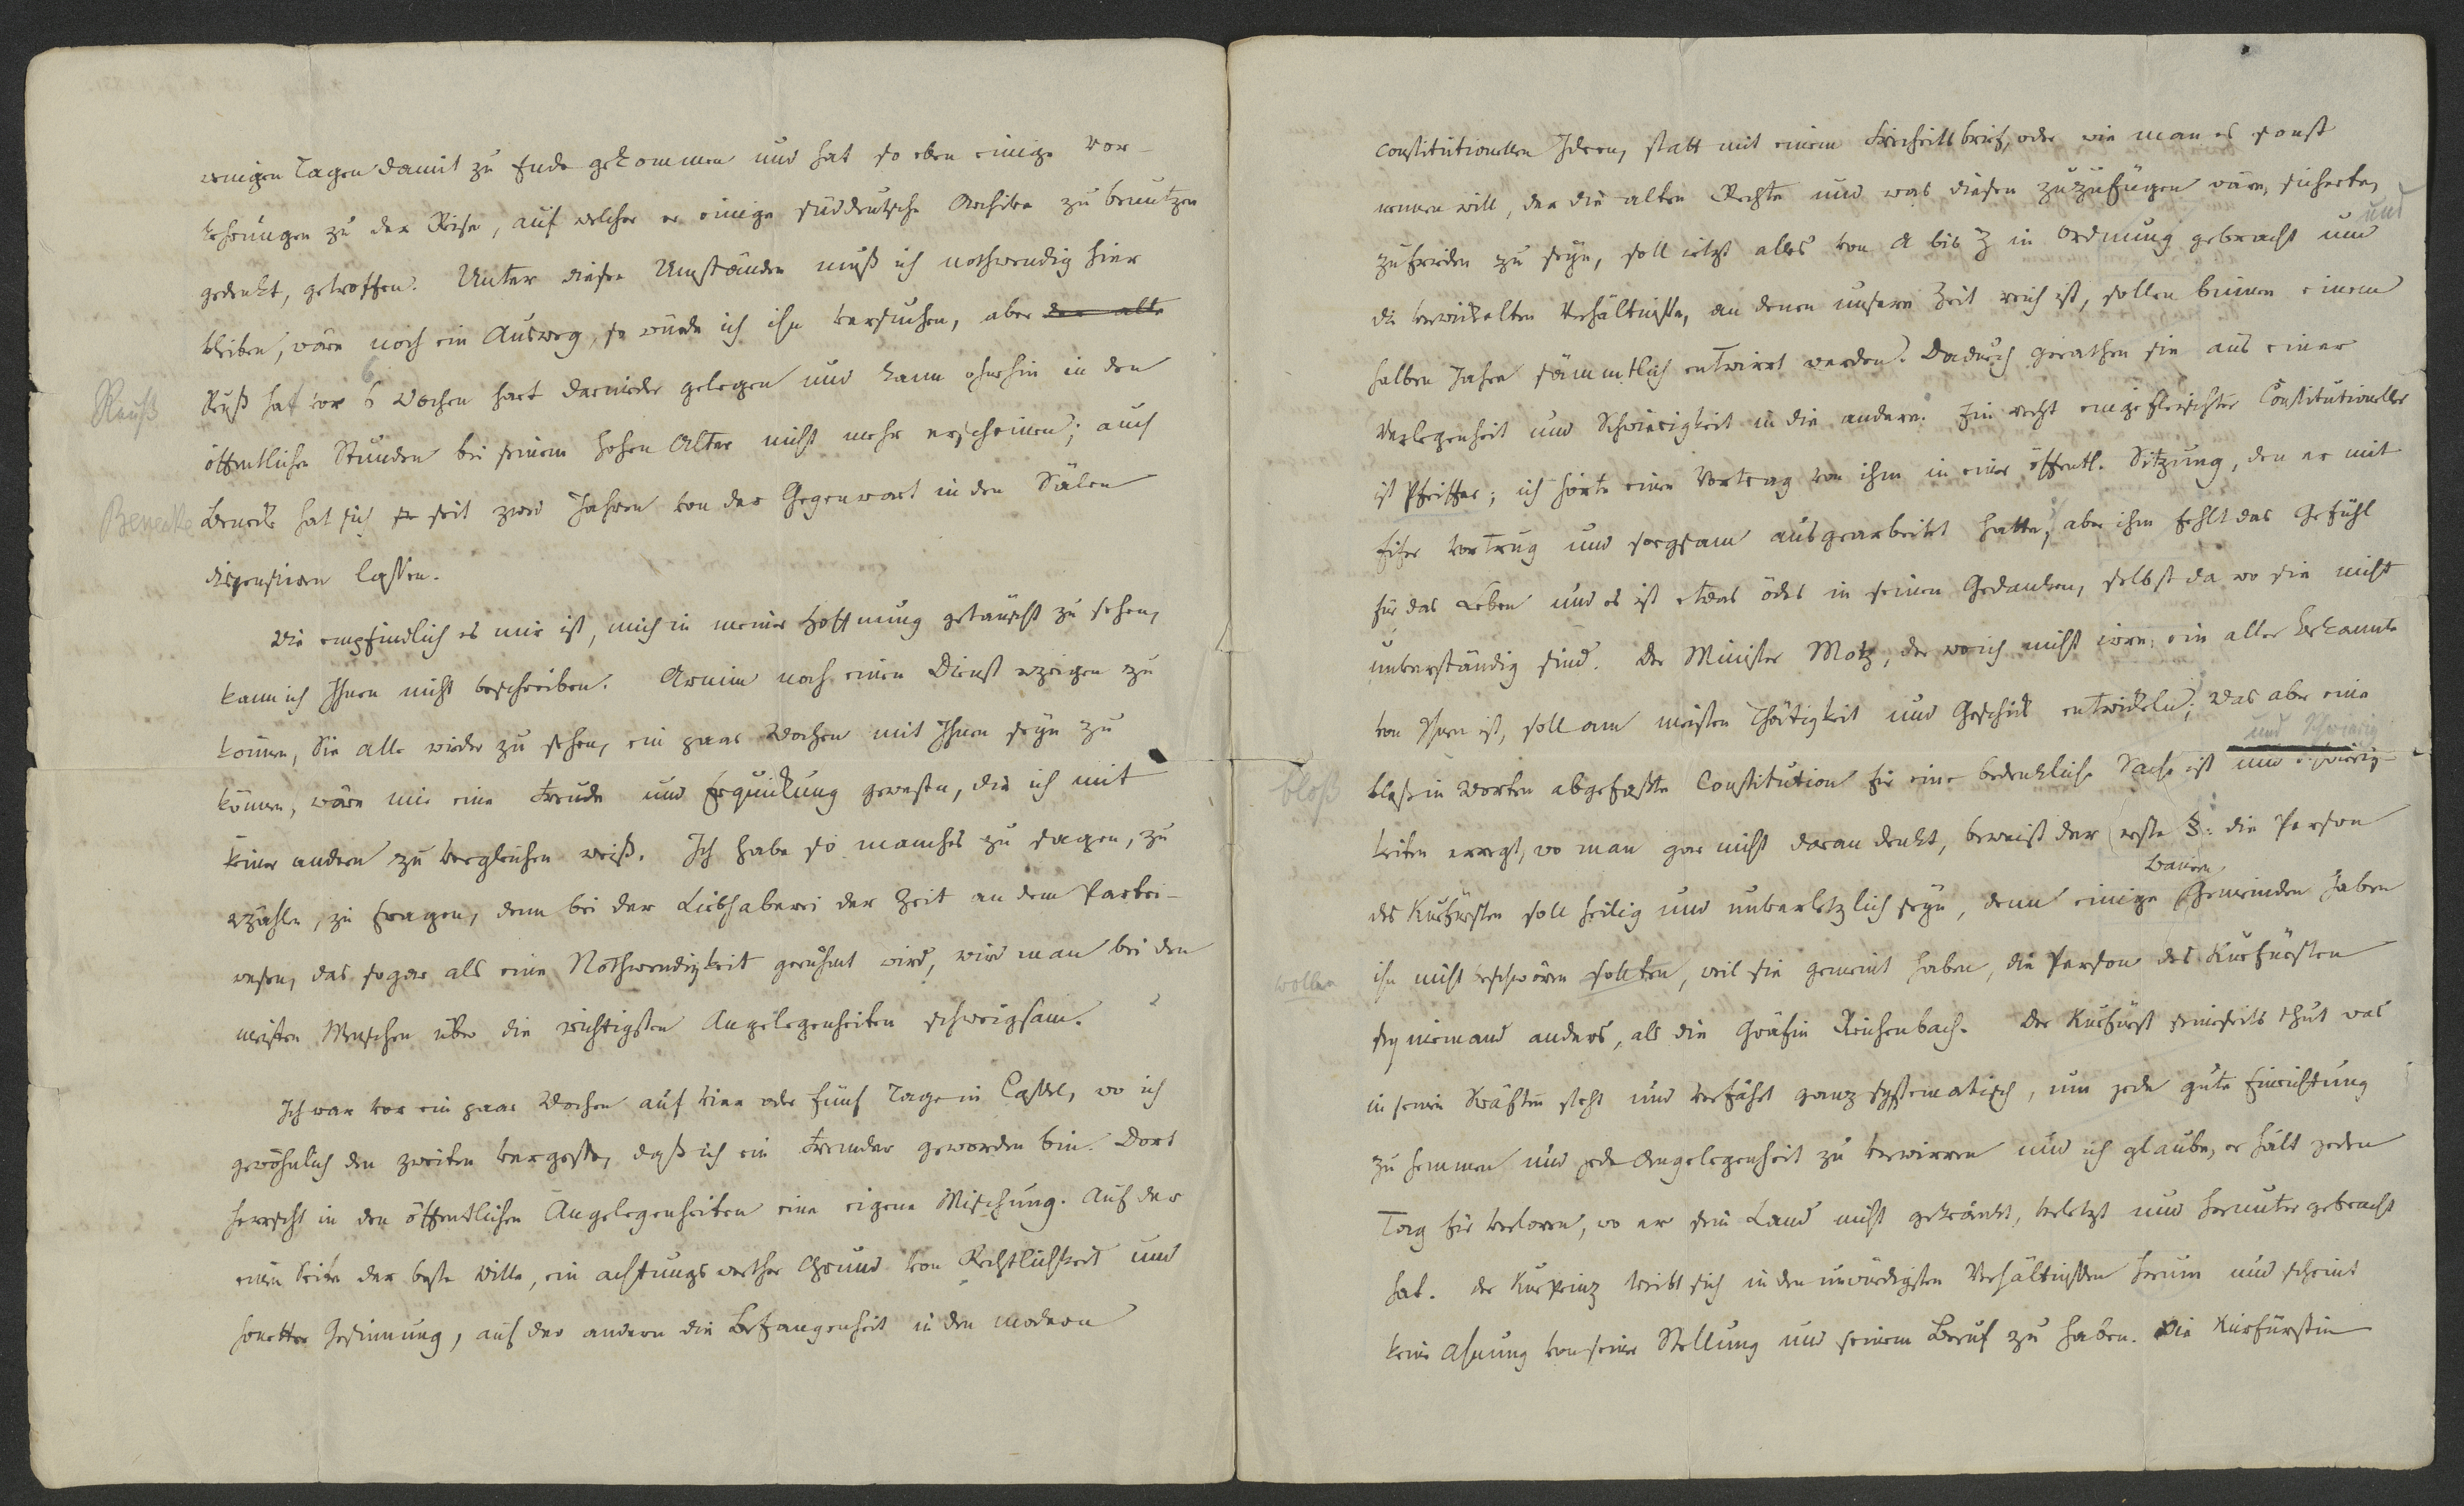 wenigen Tagen damit zu Ende gekommen und hat so eben einige Vor-
kehrungen zu der Reise, auf welcher er einige süddeutsche Archive zu benutzen
gedenkt, getroffen. Unter diesen Umständen muß ich nothwendig hier
bleiben, wäre noch ein Ausweg, so würde ich ihn versuchen, aber der alte
Reuß
6
Reuß hat vor 6 Wochen hart darnieder gelegen und kann ohnehin in den
öffentlichen Stunden bei seinem hohen Alter nicht mehr erscheinen; auch
Benecke
Benecke hat sich seit zwei Jahren von der Gegenwart in den Sälen
dispensiren lassen.
Wie empfindlich es mir ist, mich in meiner Hoffnung getäuscht zu sehen,
kann ich Ihnen nicht beschreiben. Arnim noch einen Dienst erzeigen zu
können, Sie alle wieder zu sehen, ein paar Wochen mit Ihnen seyn zu
können, wäre mir eine Freude und Erquickung gewesen, die ich mit
keiner andern zu vergleichen weiß. Ich habe so manches zu sagen, zu
erzählen, zu fragen, denn bei der Liebhaberei der Zeit an dem Partei-
wesen, das sogar als eine Nothwendigkeit gerühmt wird, wird man bei den
meisten Menschen über die wichtigsten Angelegenheiten schweigsam.
Ich war vor ein paar Wochen auf vier oder fünf Tage in Cassel, wo ich
gewöhnlich den zweiten vergesse, daß ich ein Fremder geworden bin. Dort
herrscht in den öffentlichen Angelegenheiten eine eigene Mischung. Auf der
einen Seite der beste Wille, ein achtungswerther Grund von Rechtlichkeit und
honetter Gesinnung, auf der andern die Befangenheit in den modern
constitutionellen Ideen, statt mit einem Freiheitsbrief, oder wie man es sonst
nennen will, der die alten Rechte und was diesen zuzufügen wäre, sicherte,
und
zufrieden zu seyn, soll jetzt alles von A bis Z in Ordnung gebracht und
die verwickelten Verhältnisse, an denen unsere Zeit reich ist, sollen binnen einem
halben Jahre sämmtlich entwirrt werden. Dadurch gerathen sie aus einer
Verlegenheit und Schwierigkeit in die andere. Ein recht eingefleischter Constitutioneller
ist Pfeiffer; ich hörte einen Vortrag von ihm in einer öffentl. Sitzung, den er mit
Eifer vortrug und sorgsam ausgearbeitet hatte, aber ihm fehlt das Gefühl
für das Leben und es ist etwas ödes in seinen Gedanken, selbst da wo sie nicht
unverständig sind. Der Minister Motz, der wo ich nicht irre, ein alter Bekannte
von Ihnen ist, soll am meisten Thätigkeit und Geschick entwickeln; was aber eine
und Schwierig
bloß
blos in Worten abgefaßte Constitution für eine bedenkliche Sache ist und Schwierig-
keiten erregt, wo man gar nicht daran denkt, beweist der erste §: die Person
Bauern
des Kurfürsten soll heilig und unverletzlich seyn, denn einige Gemeinden haben
wollen
ihn nicht beschwören sollten, weil sie gemeint haben, die Person des Kurfürsten
sey niemand anders, als die Gräfin Reichenbach. Der Kurfürst seinerseits thut was
in seinen Kräften steht und verfährt ganz systematisch, um jede gute Einrichtung
zu hemmen und jede Angelegenheit zu verwirren und ich glaube, er hält jeden
Tag für verloren, wo er sein Land nicht gekränkt, verletzt und herunter gebracht
hat. Der Kurprinz treibt sich in den unwürdigsten Verhältnissen herum und scheint
keine Ahnung von seiner Stellung und seinem Beruf zu haben. Die Kurfürstin